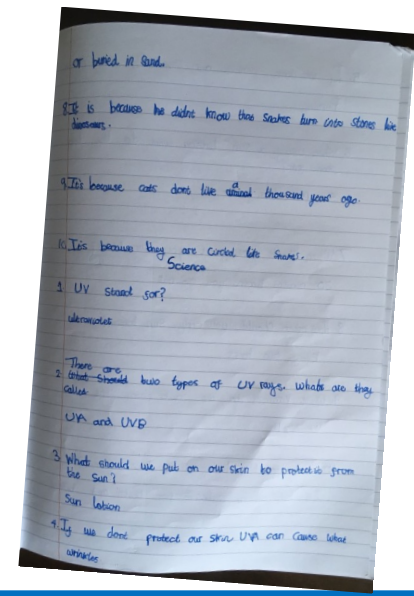 or buried in Sand.
8. It is because he didnt know that Snakes turn into stones like
dinosaurs.
9. It's because cats dont live a thousand years ago.
10. It is because they are curled like Snakes.
Science
1 UV stand for?
ultraviolet
There are
2. two types of UV rays. Whats are they
called
UVA and UVB
3 What should we put on our skin to protect is from
the sun?
Sun lotion
4. If we dont protect our skin UVA can cause what
wrinkles